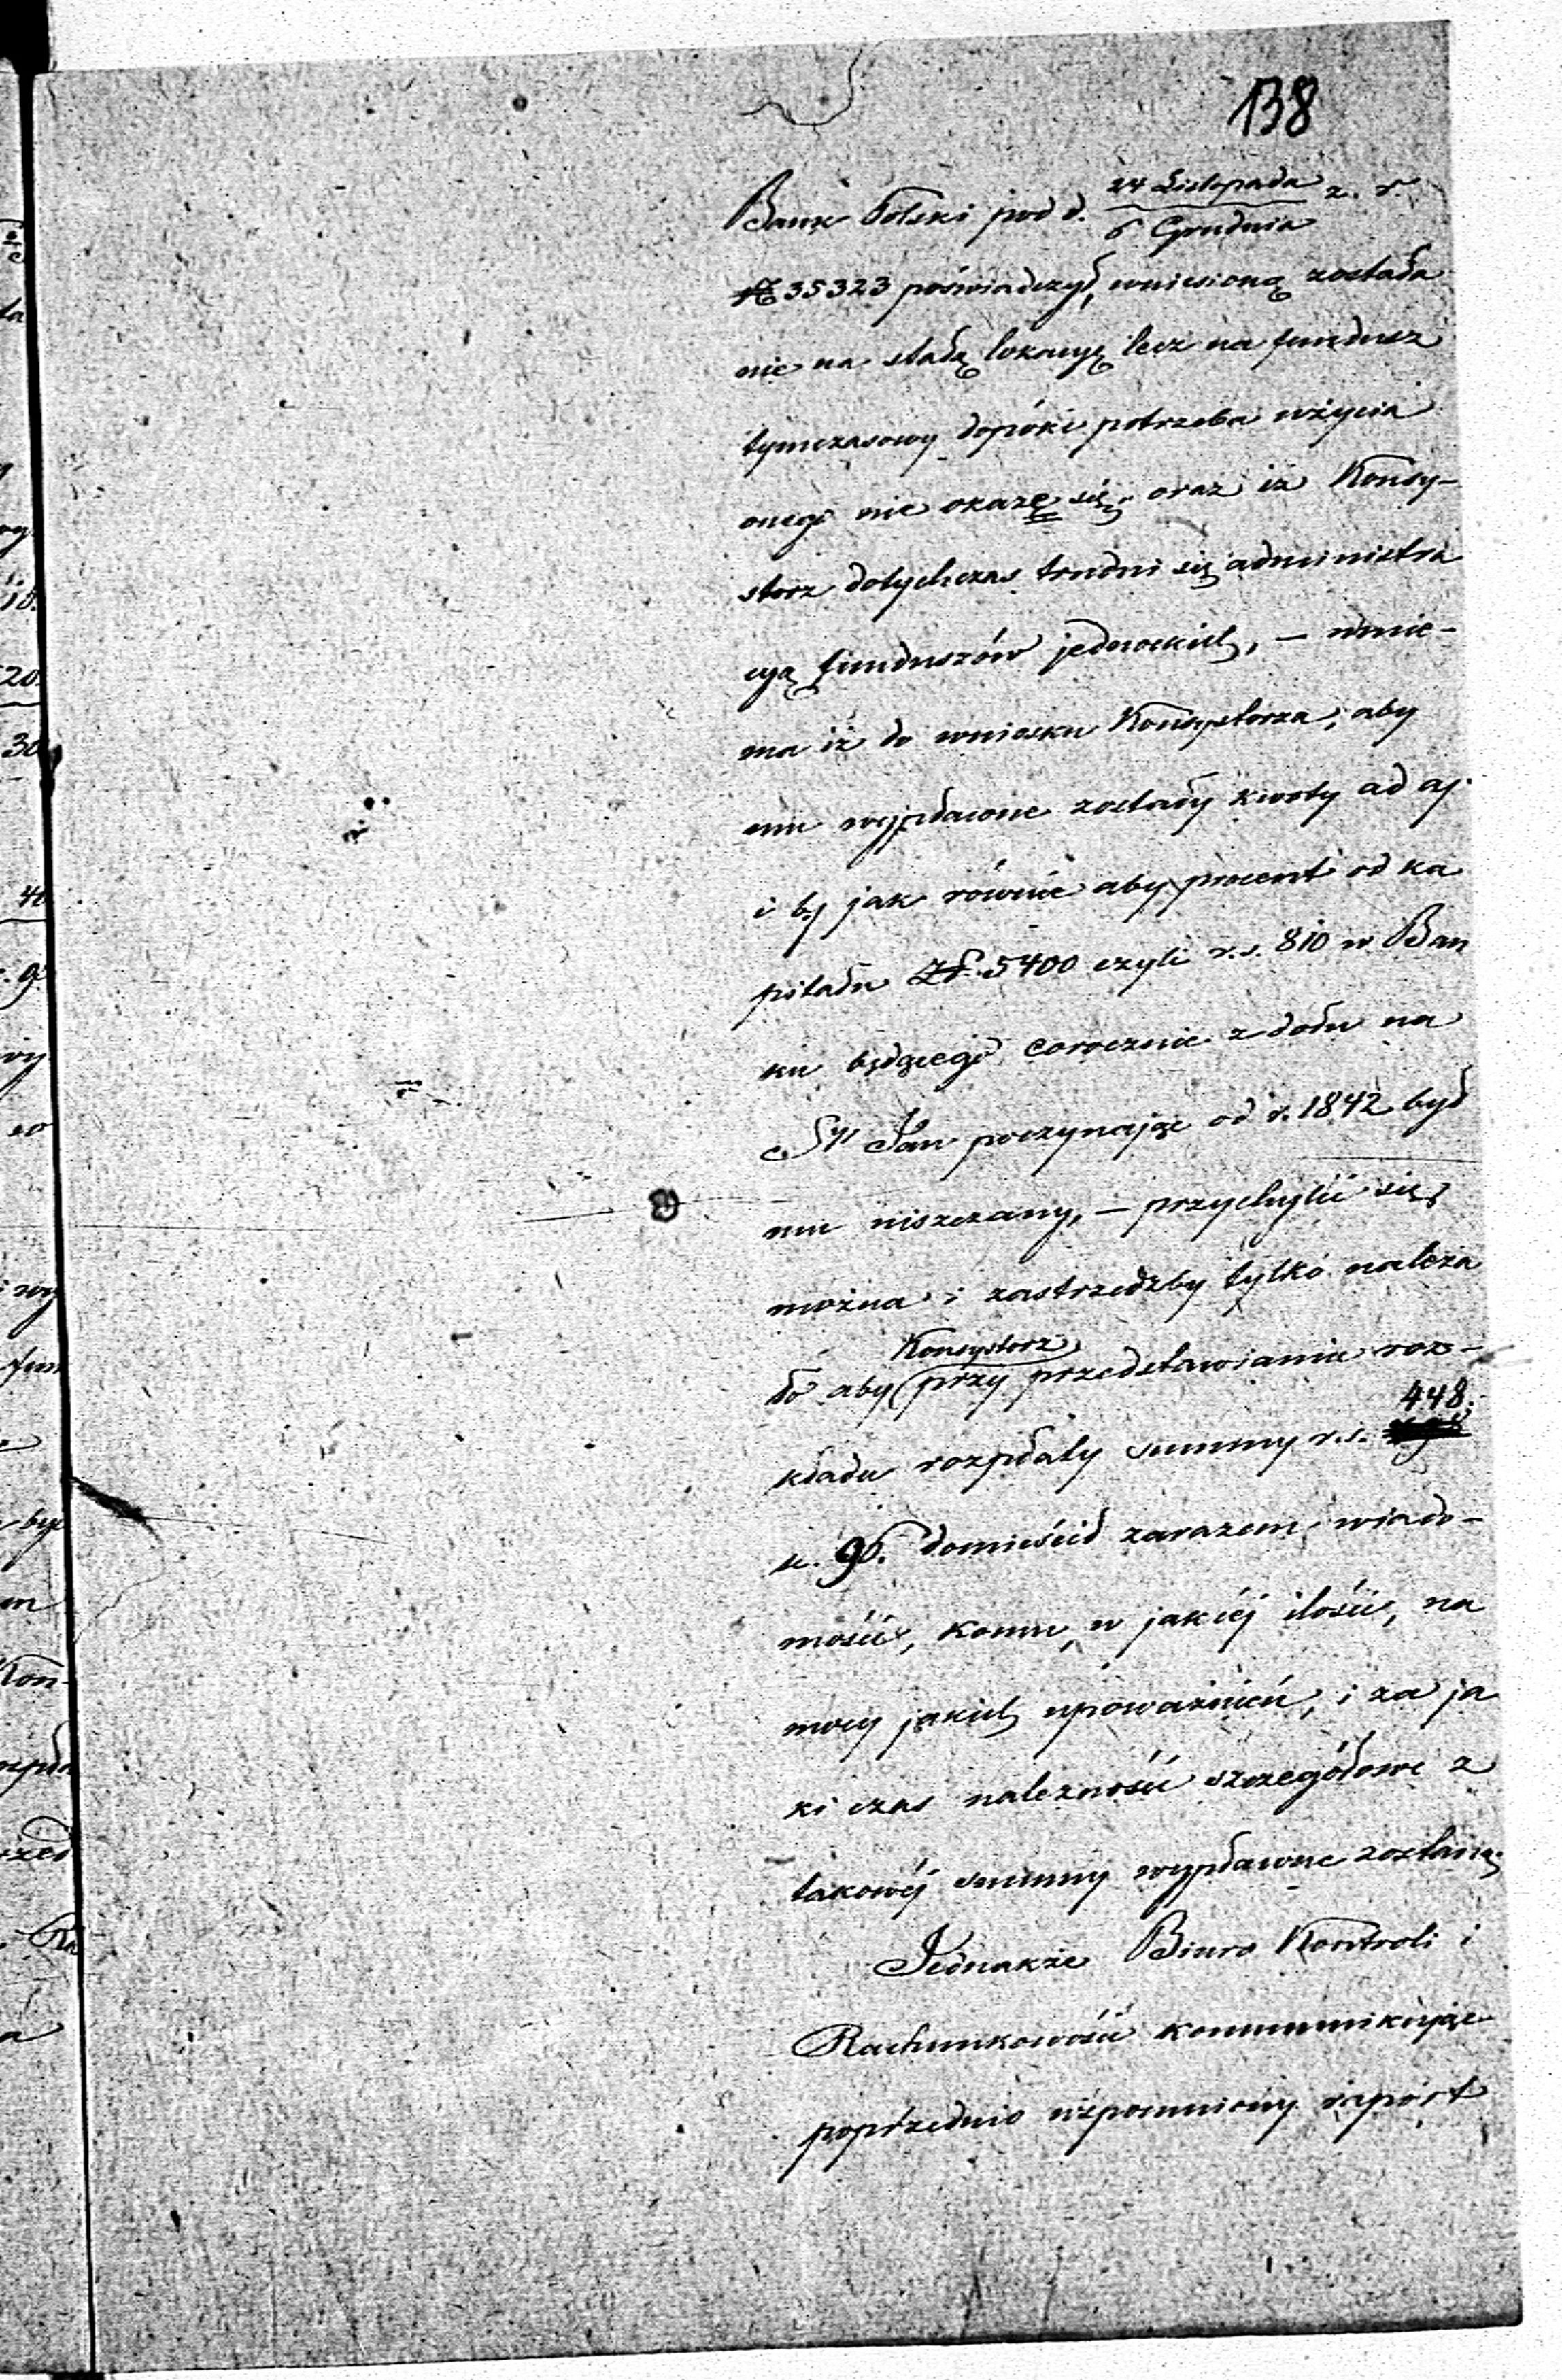 138
Bank Polski pod d. 24 Listopada / 6 Grudnia z. r.
№ 35323 poświadczył, wniesioną została
nie na stałą lokacyę lecz na fundusz
tymczasowy dopóki potrzeba użycia
onego nie okaże się, oraz iż Konsy-
storz dotychczas trudni się administra
cyą funduszów jednockich, — mnie-
ma iż do wniosku Konsystorza, aby
mu wypłacone zostały kwoty ad a/.
i b/ jak równie aby procent od ka
pitału Zł. 5400 czyli r.s. 810 w Ban
ku będącego corocznie z dołu na
S<sup>ty</sup> Jan poczynając od r. 1842 był
mu uiszczany, — przychylić się
można i zastrzedzby tylko należa
ło aby Konsystorz przy przedstawianiu roz-
kładu rozpłaty summy r.s. 448.
k. 96. domieścił zarazem wiado-
mość, komu, w jakiéj ilości, na
mocy jakich upoważnień, i za ja
ki czas należność szczegółowe z
takowéj summy wypłacone zostaną.
Jednakże Biuro Kontroli i
Rachunkowości kommunikując
poprzednio wspomniony raport